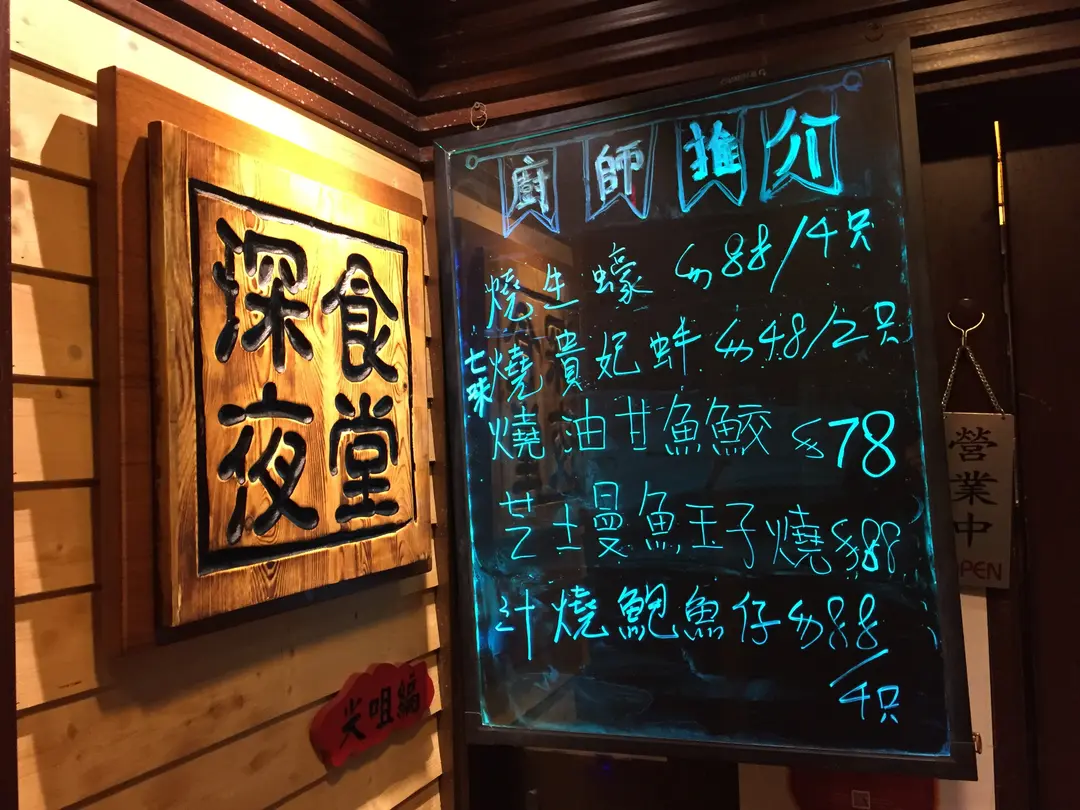 深食
夜堂
尖咀編
廚師推介
燒生蠔 $88/4只
七味燒貴妃蚌 $48/2只
燒油甘魚鮫 $78
芝士曼魚玉子燒 $88
汁燒鮑魚仔 $88
/4只
營業中
OPEN